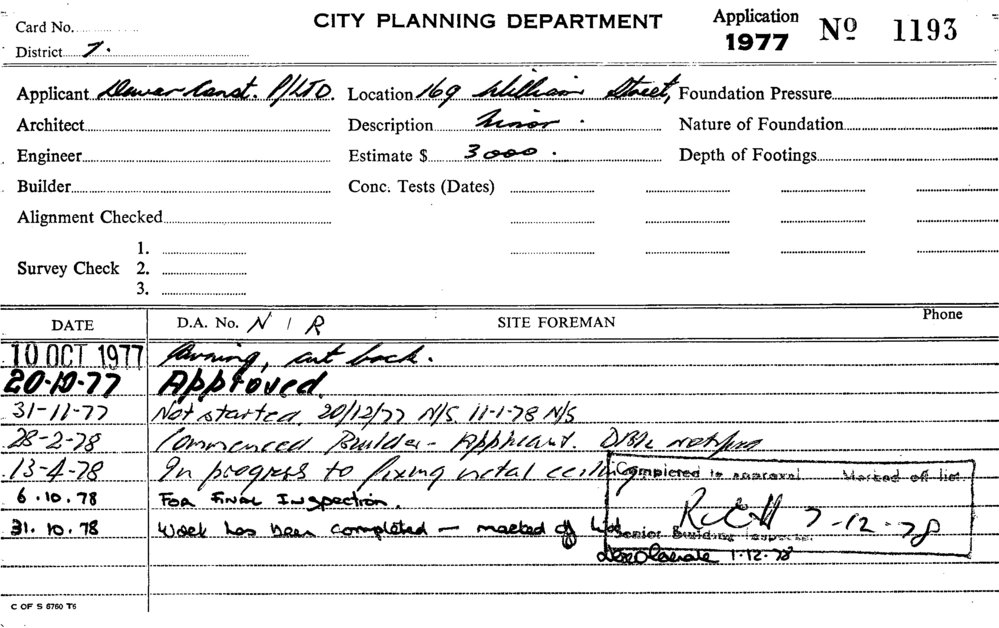 Card No.
CITY PLANNING DEPARTMENT
Application 1977 No 1193
District 7.
Applicant Dewar Const. P/LTD. Location 169 William Street, Foundation Pressure
Architect Description Minor. Nature of Foundation
Engineer Estimate $ 3000. Depth of Footings
Builder Conc. Tests (Dates)
Alignment Checked
1.
Survey Check 2.
3.
DATE D.A. No. N/R SITE FOREMAN Phone
10 OCT 1977 Awning, cut back.
20-10-77 Approved.
31-11-77 Not started. 20/12/77 N/S. 11-1-78 N/S
28-2-78 Commenced Builder - Applicant.
13-4-78 In progress to fixing metal ceiling
Completed to approval Marked off list
6.10.78 FOR FINAL INSPECTION.
7-12-78
31.10.78 Work has been completed — marked off list
Senior Building Inspector
1-12-78
C OF S 6760 T6